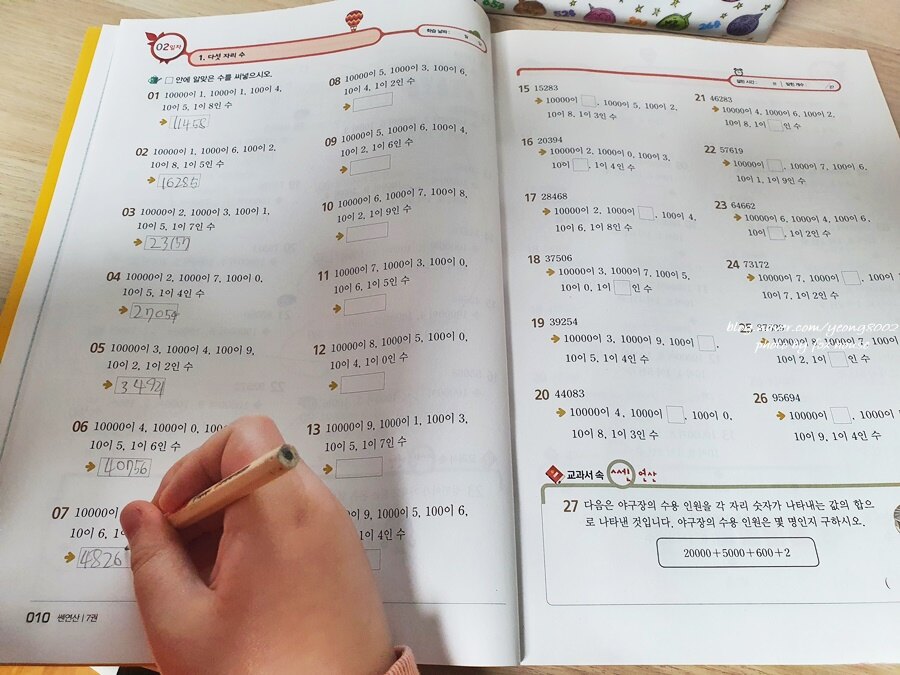 02일차
1. 다섯 자리 수
학습 날짜 : 월 일
□ 안에 알맞은 수를 써넣으시오.
01 10000이 1, 1000이 1, 100이 4,
10이 5, 1이 8인 수
11458
02 10000이 1, 1000이 6, 100이 2,
10이 8, 1이 5인 수
16285
03 10000이 2, 1000이 3, 100이 1,
10이 5, 1이 7인 수
23157
04 10000이 2, 1000이 7, 100이 0,
10이 5, 1이 4인 수
27054
05 10000이 3, 1000이 4, 100이 9,
10이 2, 1이 2인 수
06 10000이 4, 1000이 0, 100이
10이 5, 1이 6인 수
40756
07 10000이
10이 6, 1이
4826
010 쎈연산 | 7권
08 10000이 5, 1000이 3, 100이 6,
10이 4, 1이 2인 수
09 10000이 5, 1000이 6, 100이 4,
10이 2, 1이 6인 수
10 10000이 6, 1000이 7, 100이 8,
10이 2, 1이 9인 수
11 10000이 7, 1000이 3, 100이 0,
10이 6, 1이 5인 수
12 10000이 8, 1000이 5, 100이 0,
10이 4, 1이 0인 수
13 10000이 9, 1000이 1, 100이 3,
10이 5, 1이 7인 수
9, 1000이 5, 100이 6,
1이 4인 수
15 15283
10000이 □, 1000이 5, 100이 2,
10이 8, 1이 3인 수
16 20394
10000이 2, 1000이 0, 100이 3,
10이 □, 1이 4인 수
17 28468
10000이 2, 1000이 □, 100이 4,
10이 6, 1이 8인 수
18 37506
10000이 3, 1000이 7, 100이 5,
10이 0, 1이 □인 수
19 39254
10000이 3, 1000이 9, 100이 □,
10이 5, 1이 4인 수
20 44083
10000이 4, 1000이 □, 100이 0,
10이 8, 1이 3인 수
21 46283
10000이 4, 1000이 6, 100이 2,
10이 8, 1이 □인 수
22 57619
10000이 □, 1000이 7, 100이 6,
10이 1, 1이 9인 수
23 64662
10000이 6, 1000이 4, 100이 6,
10이 □, 1이 2인 수
24 73172
10000이 7, 1000이 □, 100이
10이 7, 1이 2인 수
25
10000이 8, 1000이 7, 100이
10이 2, 1이 □인 수
26 95694
10000이 □, 1000이 5, 100이
10이 9, 1이 4인 수
교과서 속 쎈 연산
27 다음은 야구장의 수용 인원을 각 자리 숫자가 나타내는 값의 합으
로 나타낸 것입니다. 야구장의 수용 인원은 몇 명인지 구하시오.
20000+5000+600+2
(